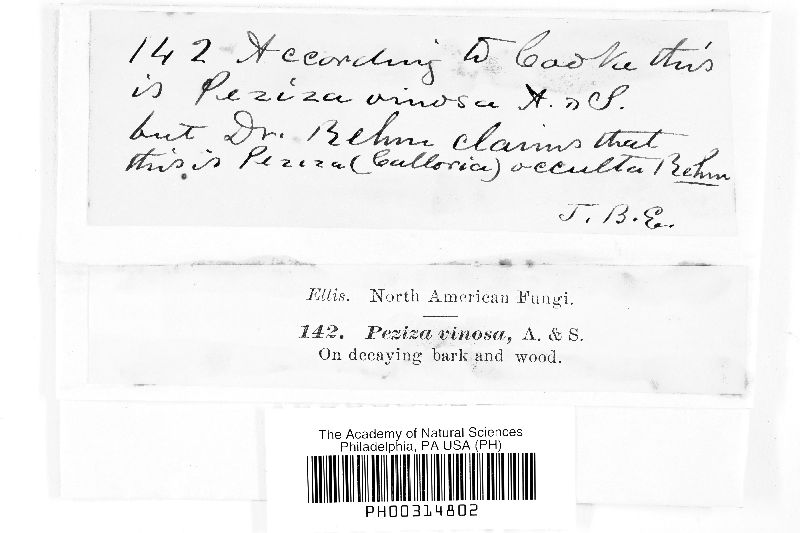 142 According to Cooke this
is Peziza vinosa A. & S.
but Dr. Rehm claims that
this is Peziza (Calloria) occulta Rehm
J. B. E.
Ellis. North American Fungi.
142. Peziza vinosa, A. & S.
On decaying bark and wood.
The Academy of Natural Sciences
Philadelphia, PA USA (PH)
PH00314802